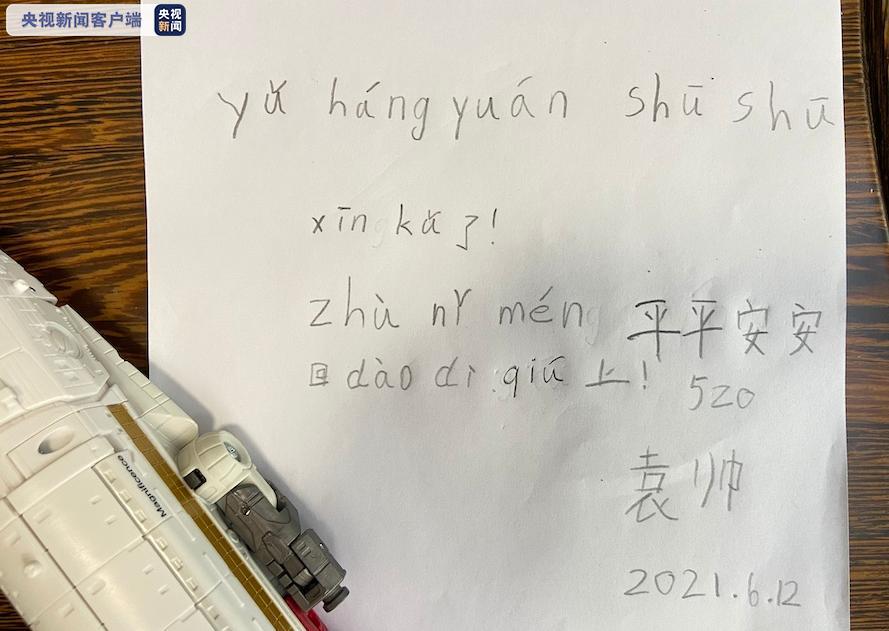 央视新闻客户端 央视新闻
yǔ háng yuán shū shū
xīn kǔ 了!
zhù nǐ mén 平平安安
回 dào dì qiū 上!
520
袁帅
2021.6.12
Magnificence